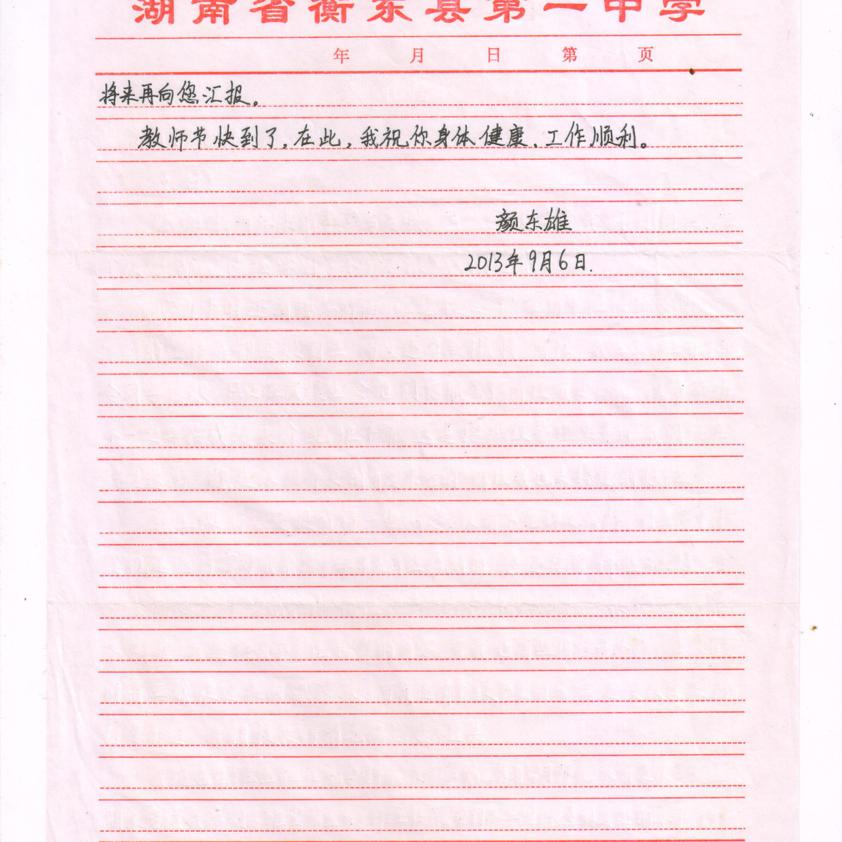 湖南省衡东县第一中学
年 月 日 第 页
将来再向您汇报。
教师节快到了,在此,我祝你身体健康、工作顺利。
颜东雄
2013年9月6日.